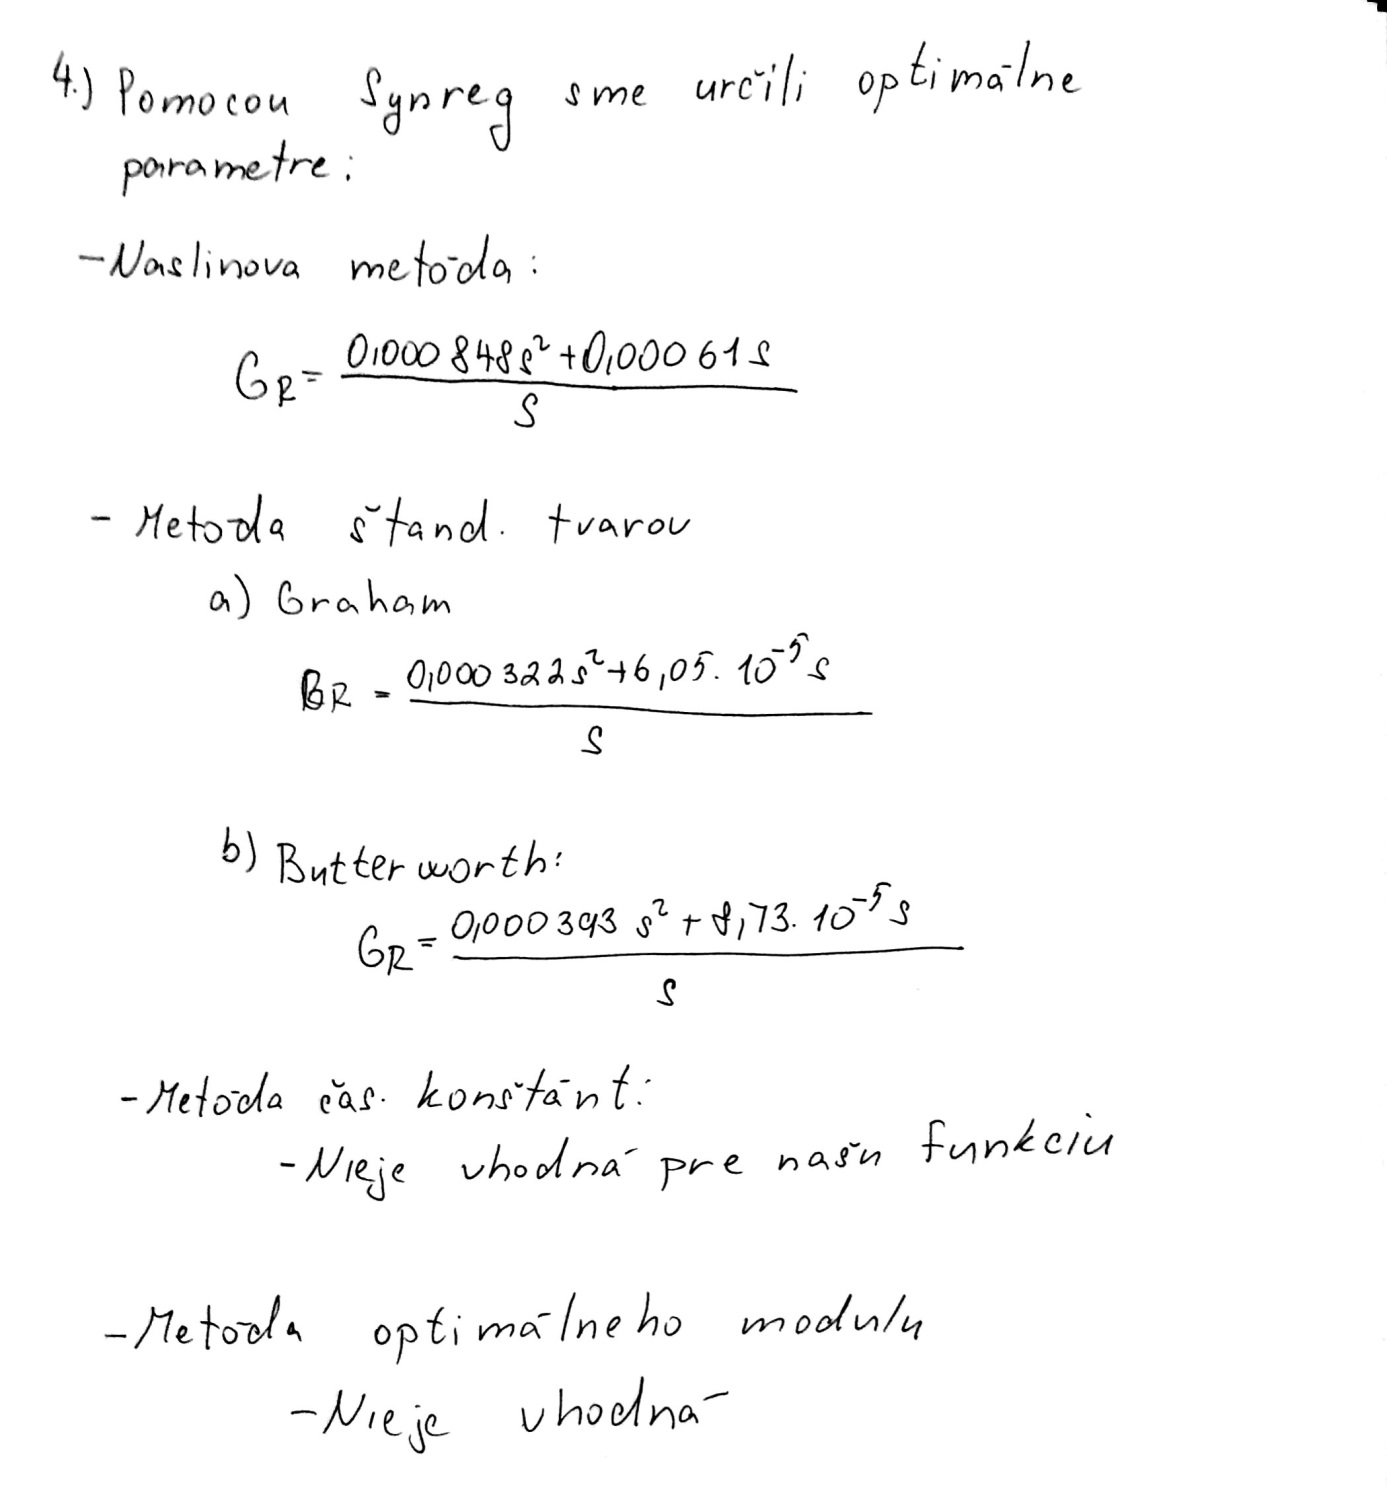 4.) Pomocou Synreg sme určili optimálne
parametre:
- Naslinova metóda:
G_R = (0,000 848 s² + 0,000 61 s) / s
- Metóda štand. tvarov
a) Graham
G_R = (0,000 322 s² + 6,05 . 10⁻⁵ s) / s
b) Butterworth:
G_R = (0,000 393 s² + 8,73 . 10⁻⁵ s) / s
- Metóda čas. konštánt:
- Nieje vhodná pre našu funkciu
- Metóda optimálneho modulu
- Nieje vhodná